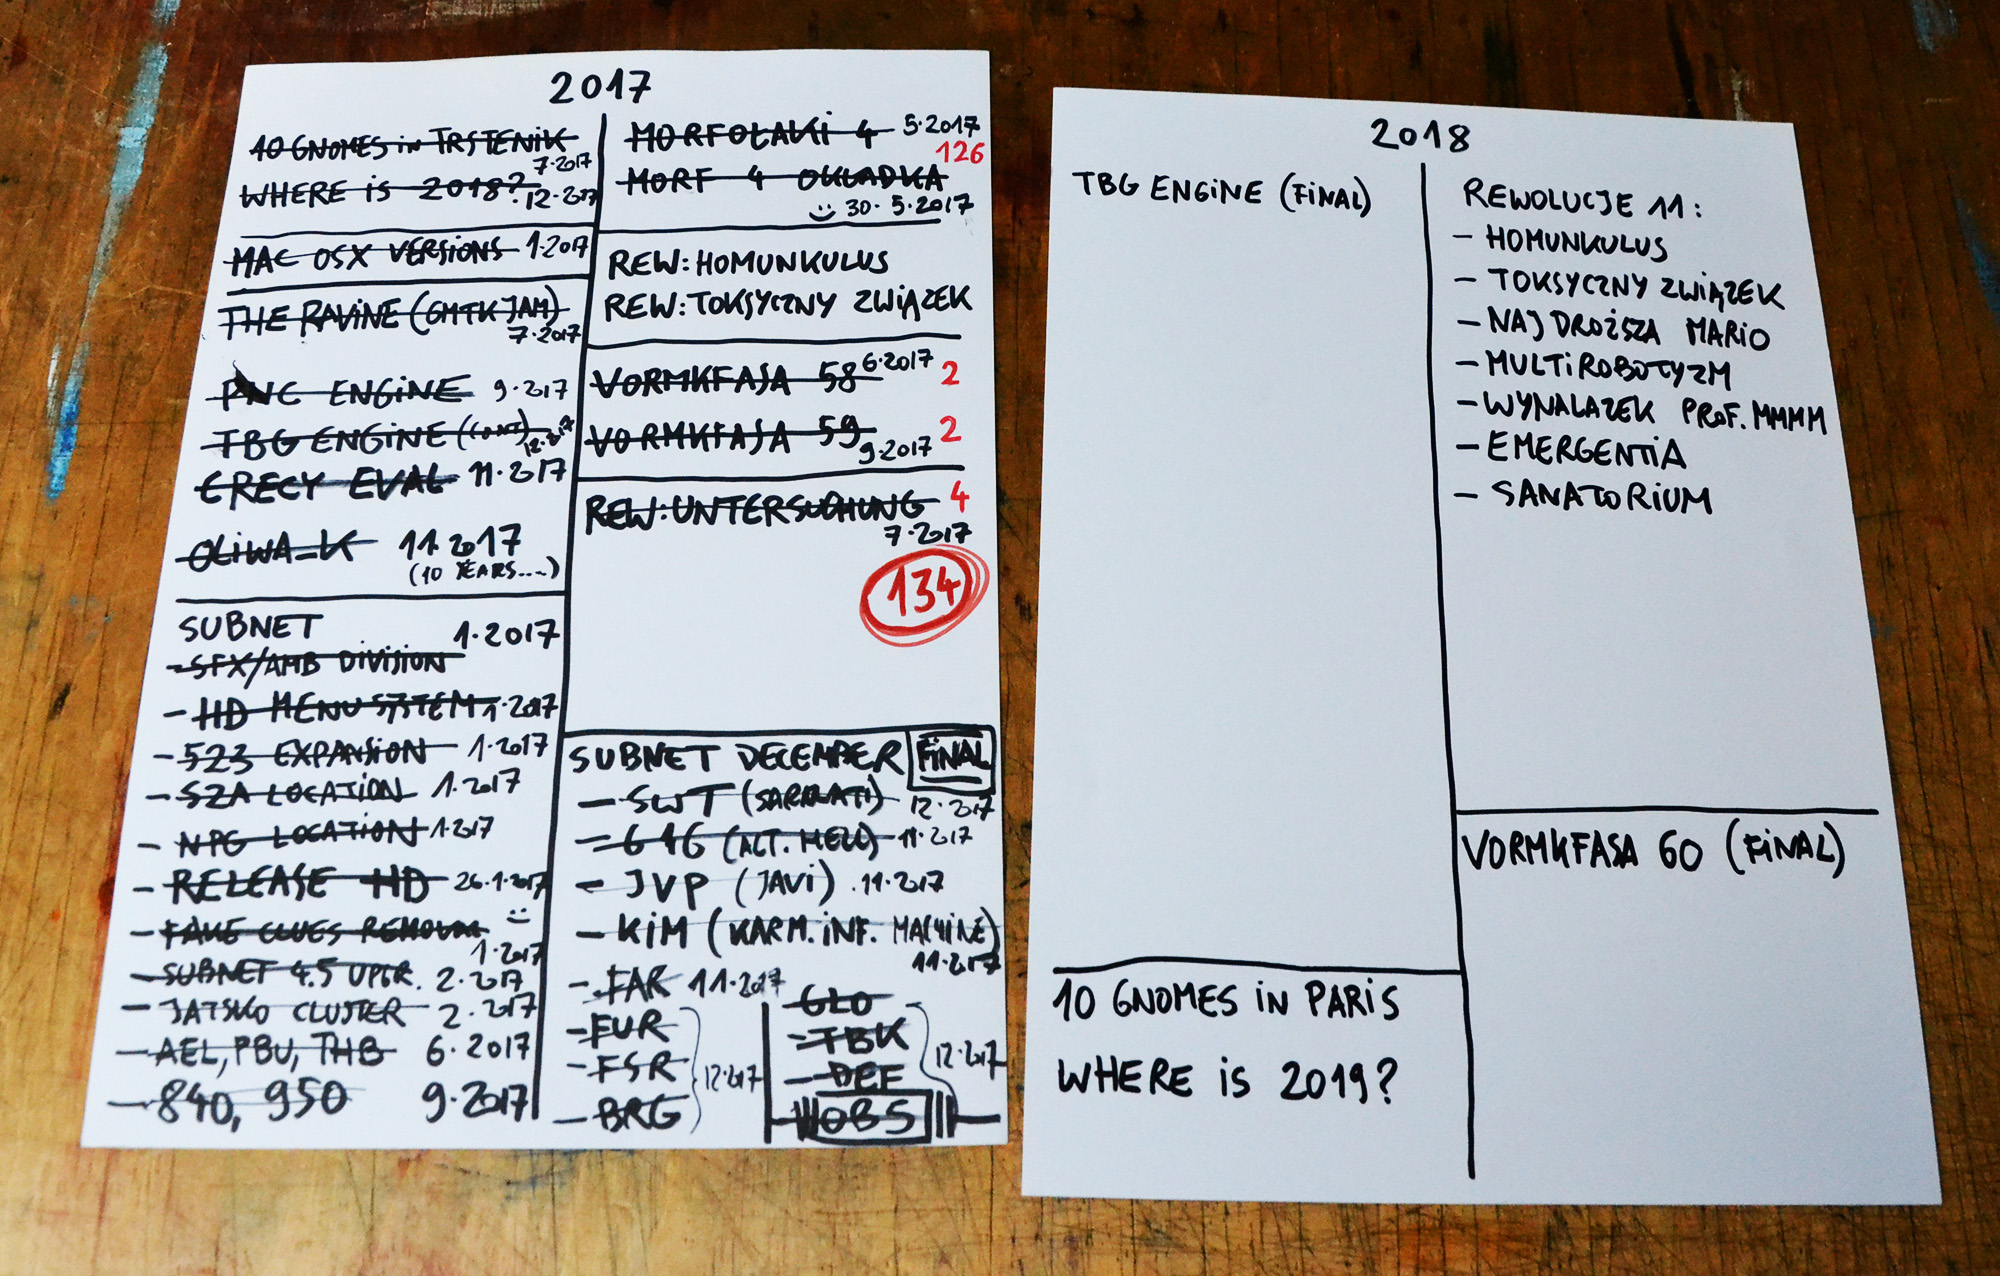 2017
10 GNOMES in TRSTENiK
7·2017
WHERE is 2018? 12·2017
MAC OSX VERSiONS 1·2017
THE RAViNE (GMTK JAM)
7·2017
PNC ENGiNE 9·2017
TBG ENGiNE (CONT)
12·2017
CRECY EVAL 11·2017
OLiWA_K 11·2017
(10 YEARS....)
SUBNET
1·2017
- SFX/AMB DiViSiON
- HD MENU SYSTEM 1·2017
- 523 EXPANSiON - 1·2017
- SZA LOCATiON 1·2017
- NPG LOCATiON 1·2017
- RELEASE HD 26·1·2017
- FAKE CLUES REMOVAL
1·2017
- SUBNET 4.5 UPGR. 2·2017
- JATSKO CLUSTER - 2·2017
- AEL, PBU, THB 6·2017
- 840, 950 9·2017
MORFOŁAKi 4 5·2017
126
MORF 4 OKŁADKA
30·5·2017
REW: HOMUNKULUS
REW: TOKSYCZNY ZWiĄZEK
VORMKFASA 58 6·2017 2
VORMKFASA 59 2
9·2017
REW: UNTERSUCHUNG 4
7·2017
134
SUBNET DECEMBER FiNAL
- SWT (SARKLATi) 12·2017
- 616 (ALT. MELL) 11·2017
- JVP (JAVi) ·11·2017
- KiM (KARM. iNF. MACHiNE)
11·2017
- FAR 11·2017
- EUR
- FSR
- BRG
12·2017
- GLO
- TBK
- DEF
12·2017
OBS
2018
TBG ENGiNE (FiNAL)
10 GNOMES iN PARiS
WHERE is 2019?
REWOLUCJE 11:
- HOMUNKULUS
- TOKSYCZNY ZWiĄZEK
- NAJDROŻSZA MARiO
- MULTiROBOTYZM
- WYNALAZEK PROF. MMMM
- EMERGENTiA
- SANATORiUM
VORMKFASA 60 (FiNAL)